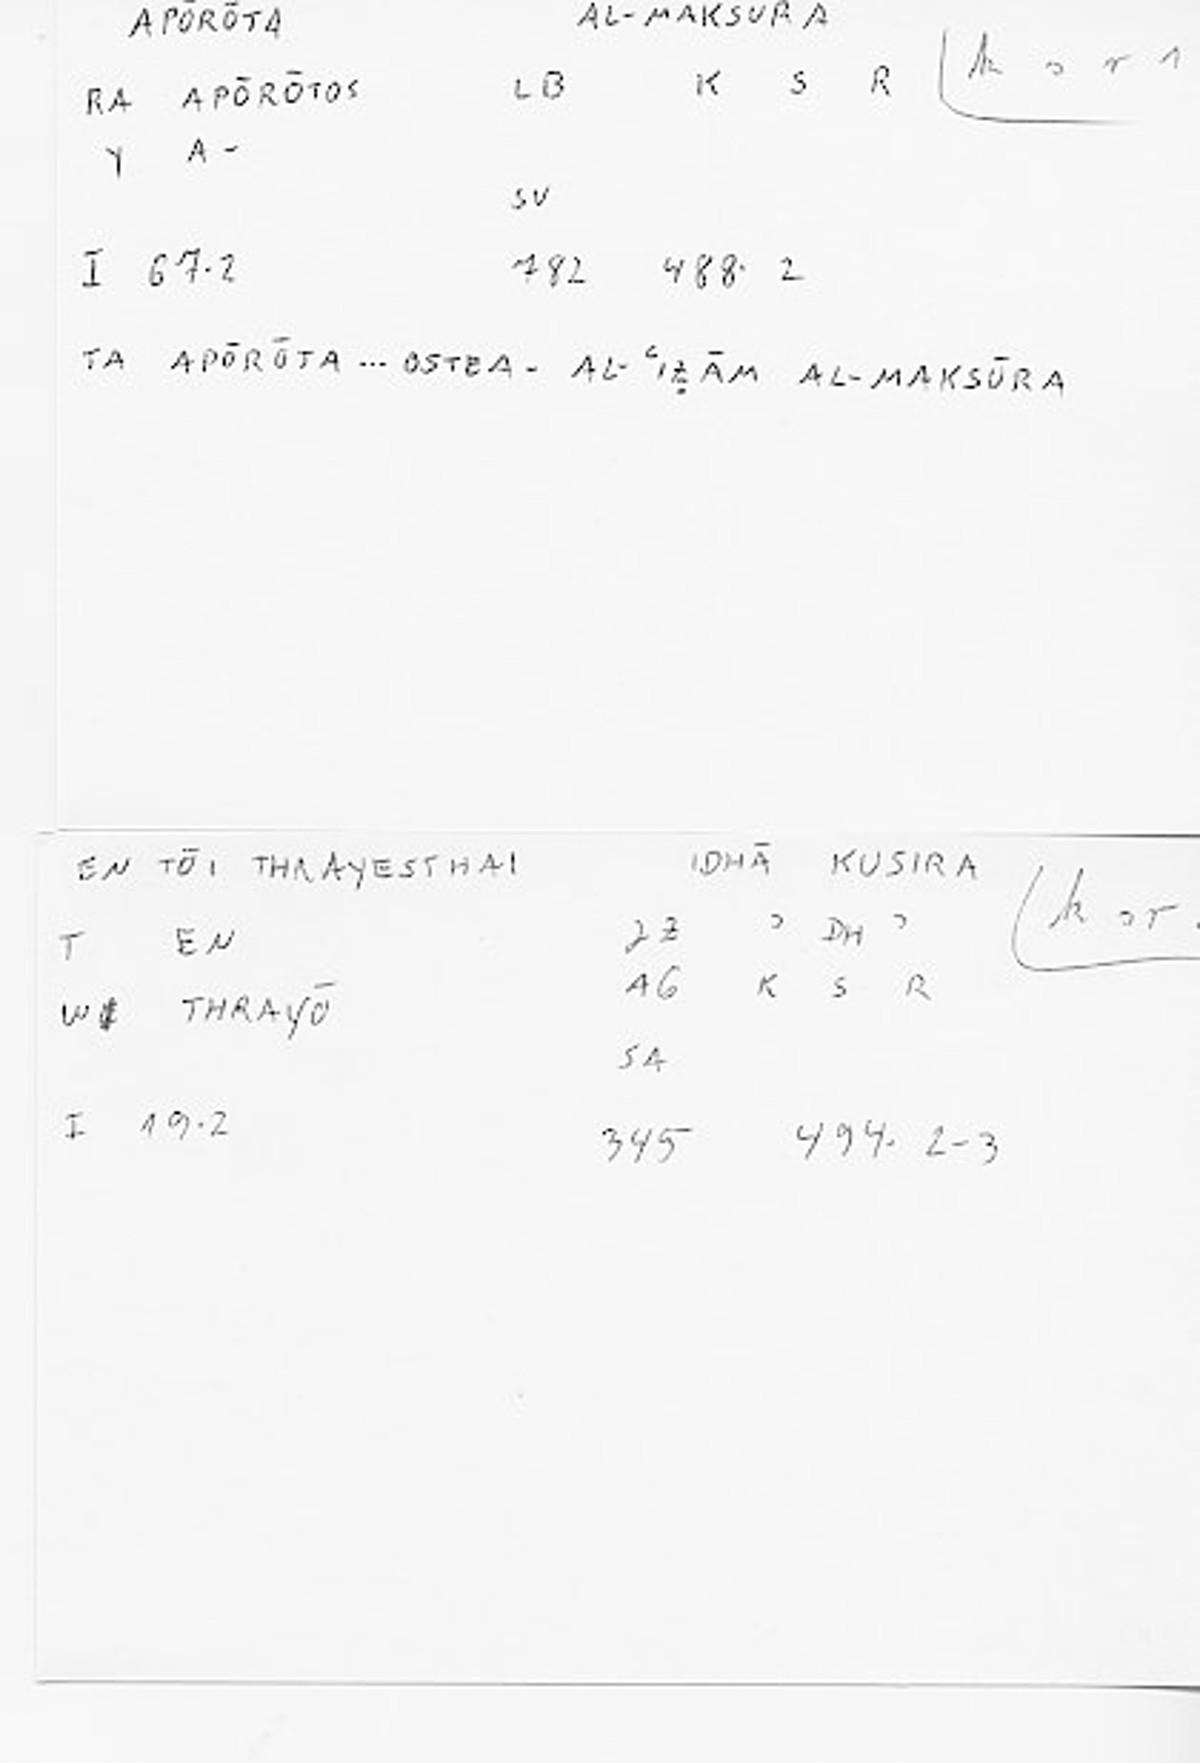 APŌRŌTA AL-MAKSŪRA
RA APŌRŌTOS LB K S R
Y A-
SV
I 67.2 782 488. 2
TA APŌRŌTA ... OSTEA - AL-ʿIẒĀM AL-MAKSŪRA
EN TŌI THRAYESTHAI IDHĀ KUSIRA
T EN ZZ ʾ DH ʾ
W THRAYŌ AG K S R
SA
I 19.2 345 494. 2-3